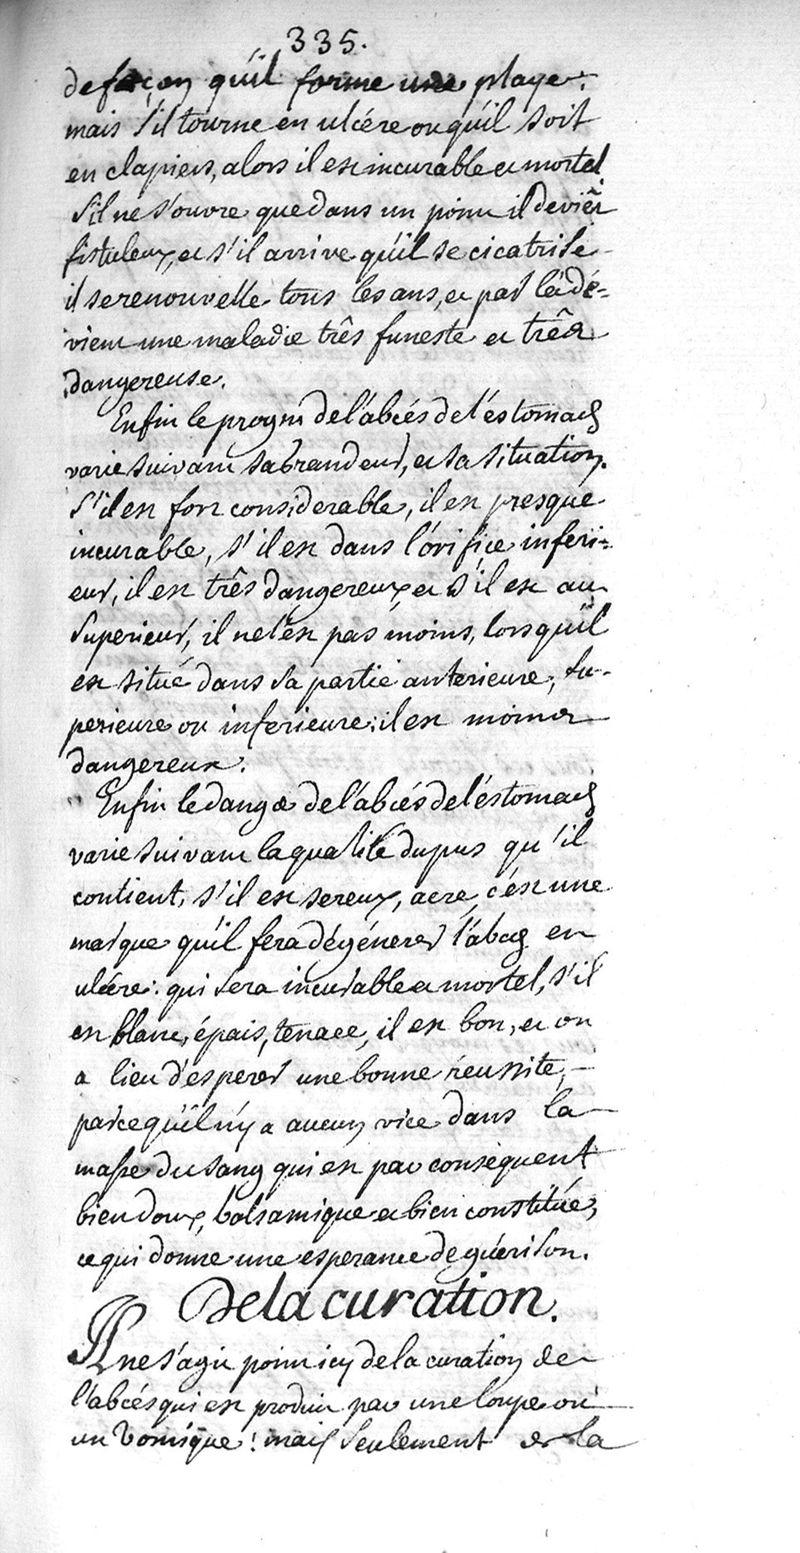 335.
de façon qu'il forme une playe.
mais s'il tourne en ulcére ou qu'il soit
en clapiers, alors il est incurable et mortel
s'il ne s'ouvre que dans un point il deviēt
fistuleux, et s'il arrive qu'il se cicatrise
il se renouvelle tous les ans, et par là dé=
vient une maladie três funeste et três
dangereuse.
Enfin le progm de l'abcés de l'éstomach
varie suivant sa grandeur, et sa situation.
S'il est fort considerable, il est presque
incurable, s'il est dans l'órifice inferi=
eur, il est três dangereux et s'il est au
superieur, il ne l'est pas moins, lorsqu'il
est situé dans sa partie anterieure, su-
perieure ou inferieure: il est moins
dangereux.
Enfin le danger de l'abcés de l'éstomach
varie suivant la qualité du pus qu'il
contient, s'il est sereux, acre, c'ést une
marque qu'il fera dégénerer l'abcés en
ulcére: qui sera incurable et mortel, s'il
est blanc, épais, tenace, il est bon, et on
a lieu d'esperer une bonne réussite,
parcequ'il n'y a aucun vice dans la
masse du sang qui est par conséquent
bien doux, balsamique et bien constitué,
ce qui donne une esperance de guérison.
De la curation.
Il ne s'agit point icy de la curation de
l'abcés qui est produit par une loupe ou
un vomique! mais seulement de la